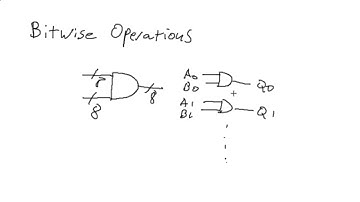 Bitwise Operations
8
8
8
A0
B0
Q0
A1
B1
Q1